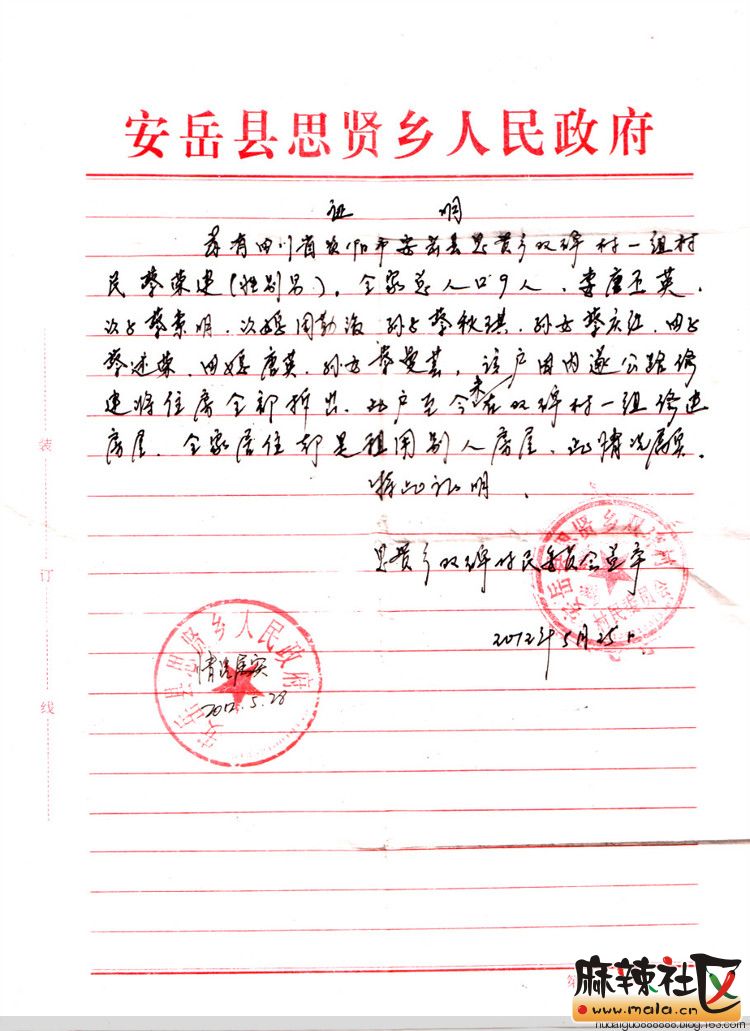 安岳县思贤乡人民政府
证 明
兹有四川省资阳市安岳县思贤乡双碑村一组村
民蔡荣建(性别男)。全家总人口9人、妻唐玉英、
次子蔡素明、次媳周勤海 孙子蔡秋琪、孙女蔡庆红、四子
蔡述荣、四媳唐英、孙女蔡曼芸,该户因内遂公路修
建将住房全部拆出、此户至今未在双碑村一组修建
房屋、全家居住都是租用别人房屋、此情况属实。
特此证明、
思贤乡双碑村民委员会盖章
2012年5月25日
安岳县思贤乡
村民委员会
安岳县思贤乡人民政府
情况属实
2012.5.28
装
订
线
麻辣社区
www.mala.cn